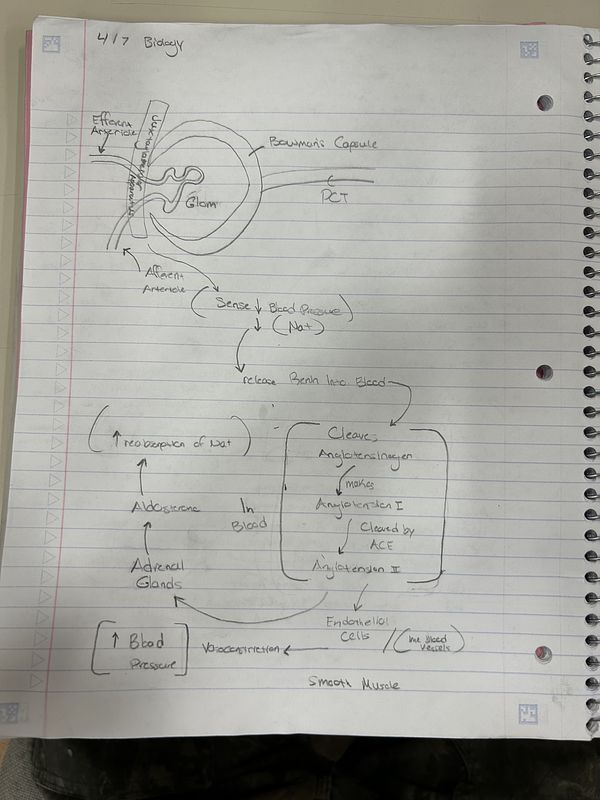 4/7 Biology
Efferent
Arteriole
Juxtaglomerular
Apparatus
Bowman's Capsule
Glom
PCT
Afferent
Arteriole
(Sense ↓ Blood Pressure)
↓ (Na+)
release Renin Into Blood
(↑ reabsorption of Na+)
Cleaves
Angiotensinogen
makes
Angiotension I
Cleaved by
ACE
Angiotension II
In
Blood
Aldosterone
Adrenal
Glands
Endothelial
Cells / (line Blood
Vessels)
Vasoconstriction
[↑ Blood
Pressure]
Smooth Muscle